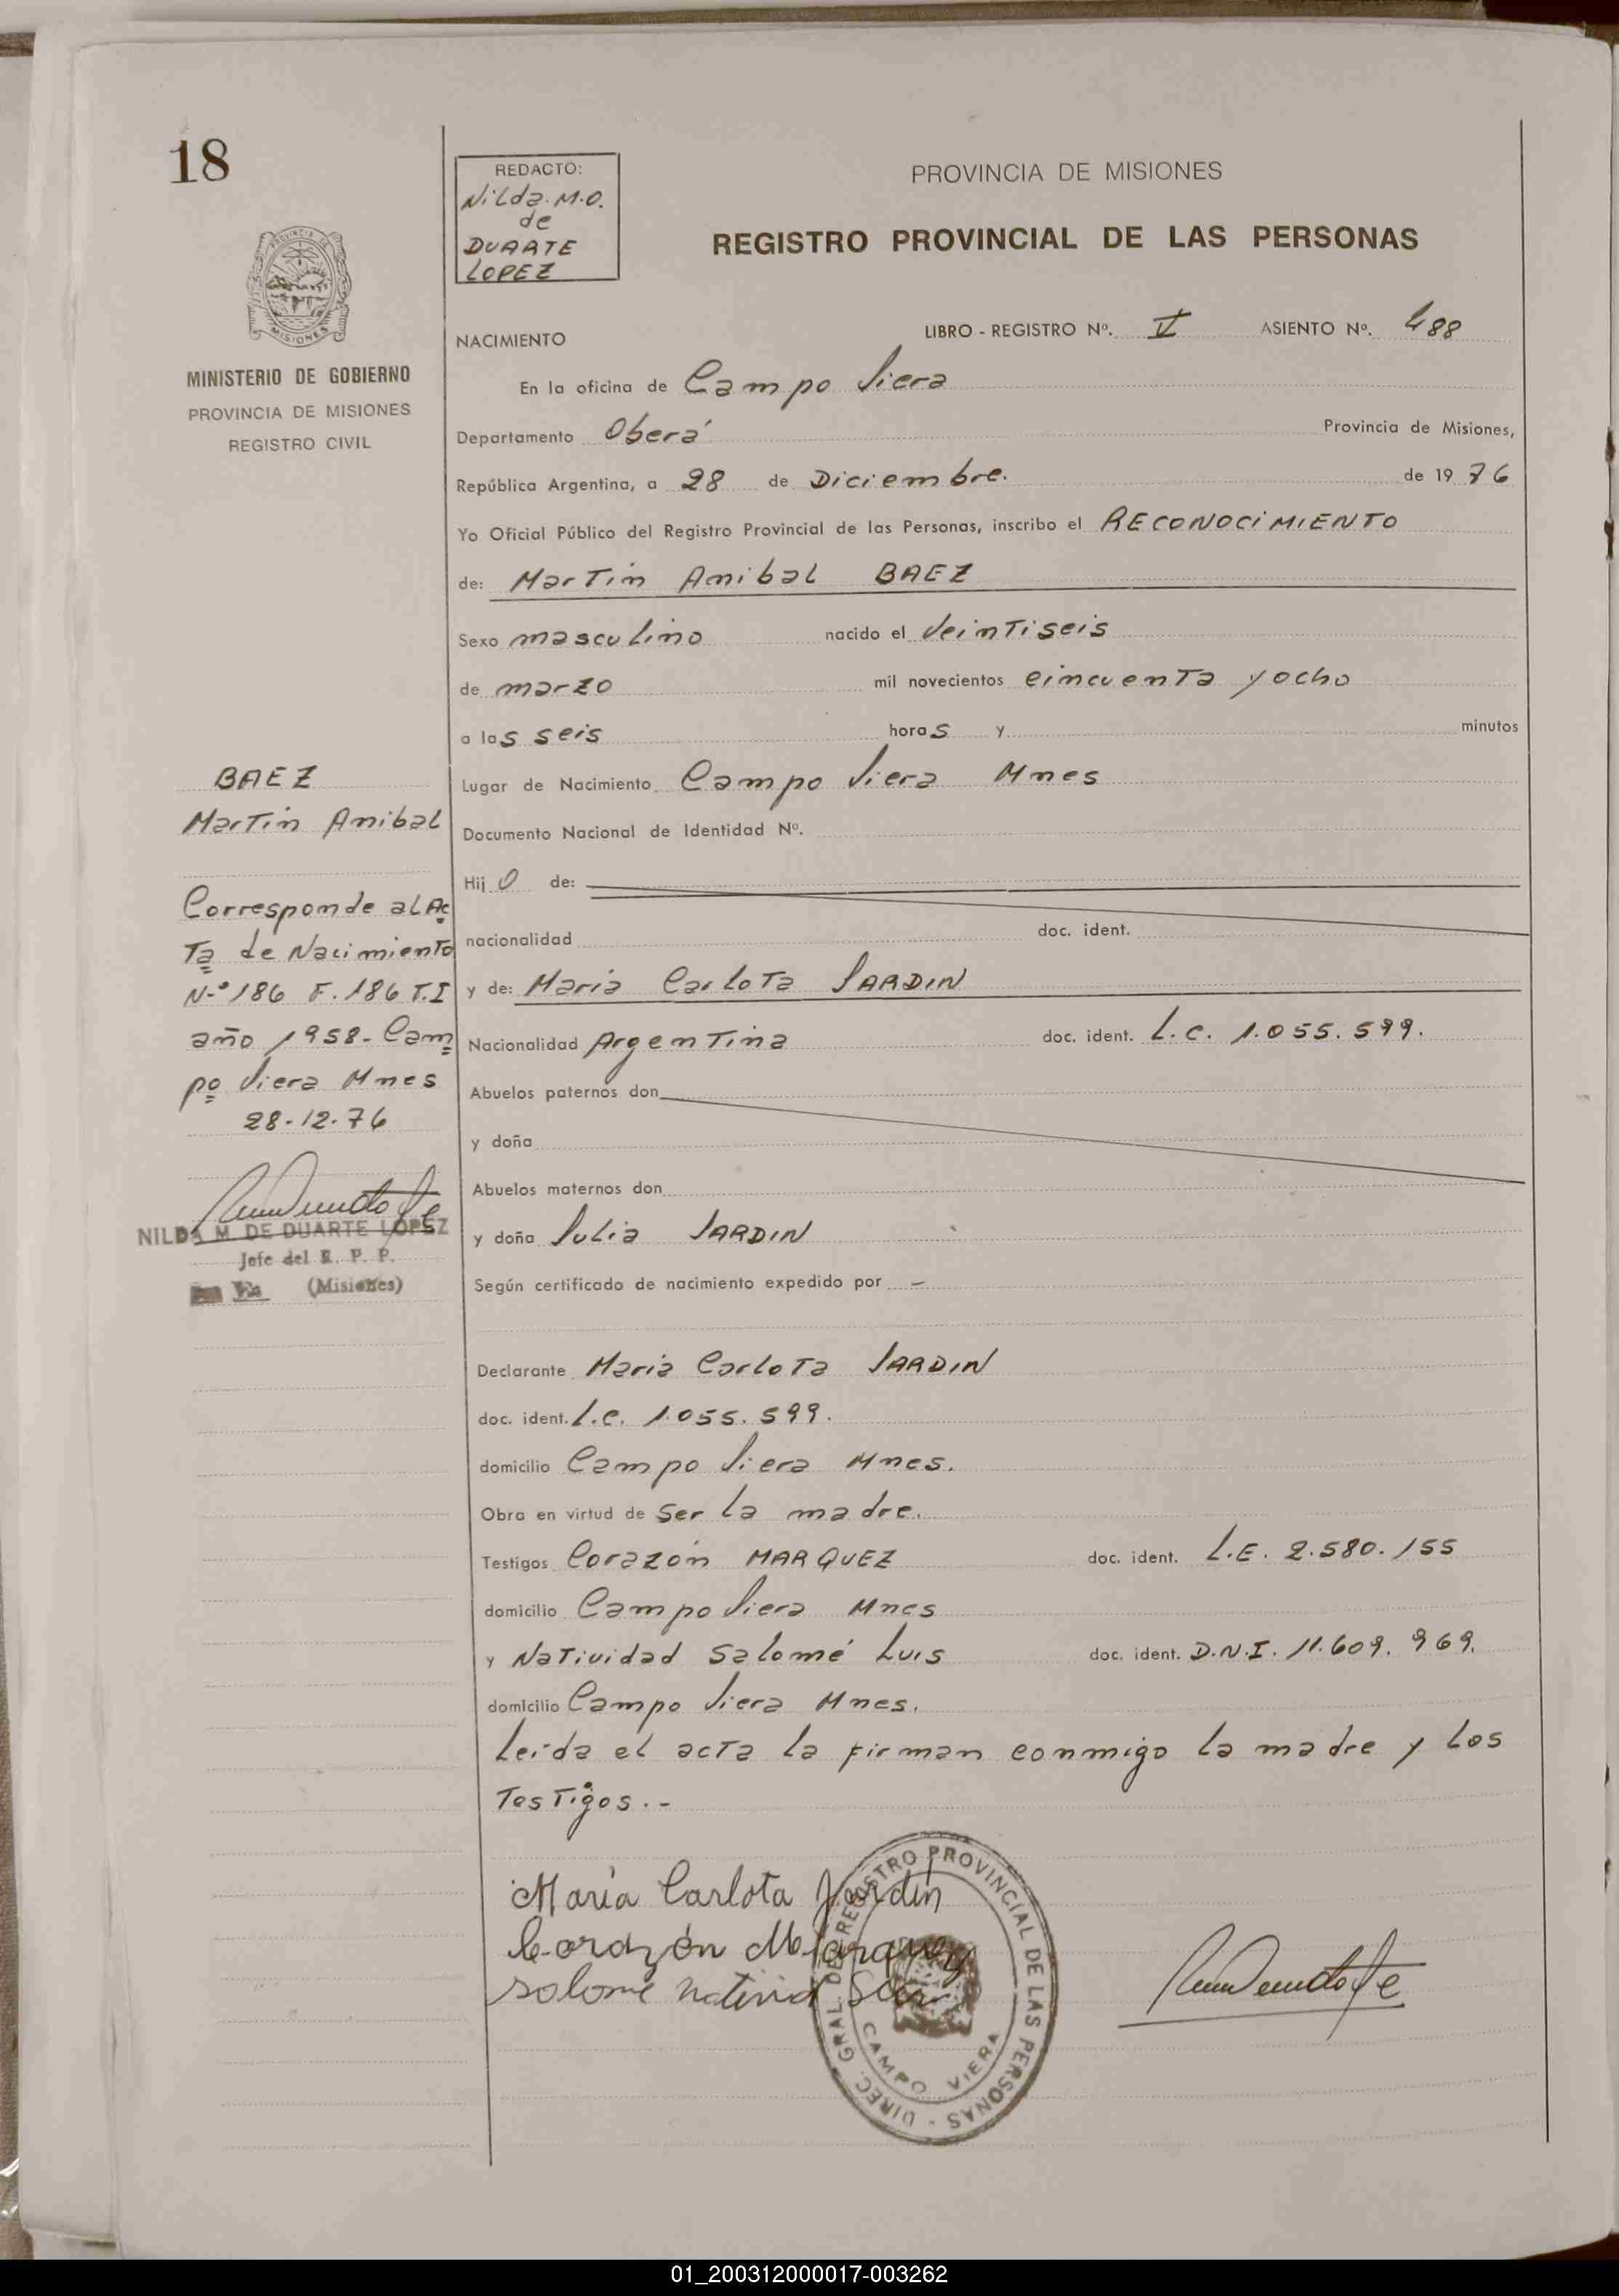 18
REDACTO:
Nilda. M.O.
de
DUARTE
LOPEZ
PROVINCIA DE MISIONES
REGISTRO PROVINCIAL DE LAS PERSONAS
PROVINCIA DE
MISIONES
MINISTERIO DE GOBIERNO
PROVINCIA DE MISIONES
REGISTRO CIVIL
NACIMIENTO LIBRO - REGISTRO Nº. V ASIENTO Nº. 488
En la oficina de Campo Viera
Departamento Oberá Provincia de Misiones,
República Argentina, a 28 de Diciembre. de 19 76
Yo Oficial Público del Registro Provincial de las Personas, inscribo el RECONOCIMIENTO
de: Martin Anibal BAEZ
Sexo masculino nacido el Veintiseis
de marzo mil novecientos cincuenta y ocho
a las seis horas y minutos
Lugar de Nacimiento Campo Viera Mnes
Documento Nacional de Identidad Nº.
Hijo de:
nacionalidad doc. ident.
y de: Maria Carlota JARDIN
Nacionalidad Argentina doc. ident. L.C. 1.055.599.
Abuelos paternos don
y doña
Abuelos maternos don
y doña Julia JARDIN
Según certificado de nacimiento expedido por -
BAEZ
Martin Anibal
Corresponde al Ac
ta de Nacimiento
N-º 186 F. 186 T.I
año 1958- Cam
po Viera Mnes
28-12-76
NILDA M. DE DUARTE LOPEZ
Jefe del R. P. P.
(Misiones)
Declarante Maria Carlota JARDIN
doc. ident. L.C. 1.055.599.
domicilio Campo Viera Mnes.
Obra en virtud de ser la madre.
Testigos Corazón MARQUEZ doc. ident. L.E. 2.580.155
domicilio Campo Viera Mnes
y Natividad Salomé Luis doc. ident. D.N.I. 11.609.969.
domicilio Campo Viera Mnes.
Leida el acta la firman conmigo la madre y los
testigos.-
María Carlota Jardin
Corazón Marquez
Salome Nativid
DIREC. GRAL. DEL REGISTRO PROVINCIAL DE LAS PERSONAS -
CAMPO VIERA
01_200312000017-003262